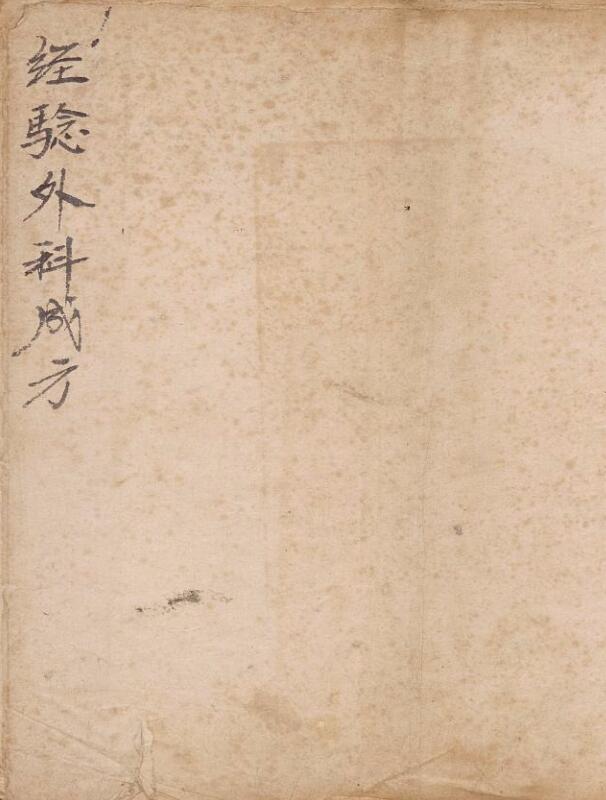 经騐外科成方